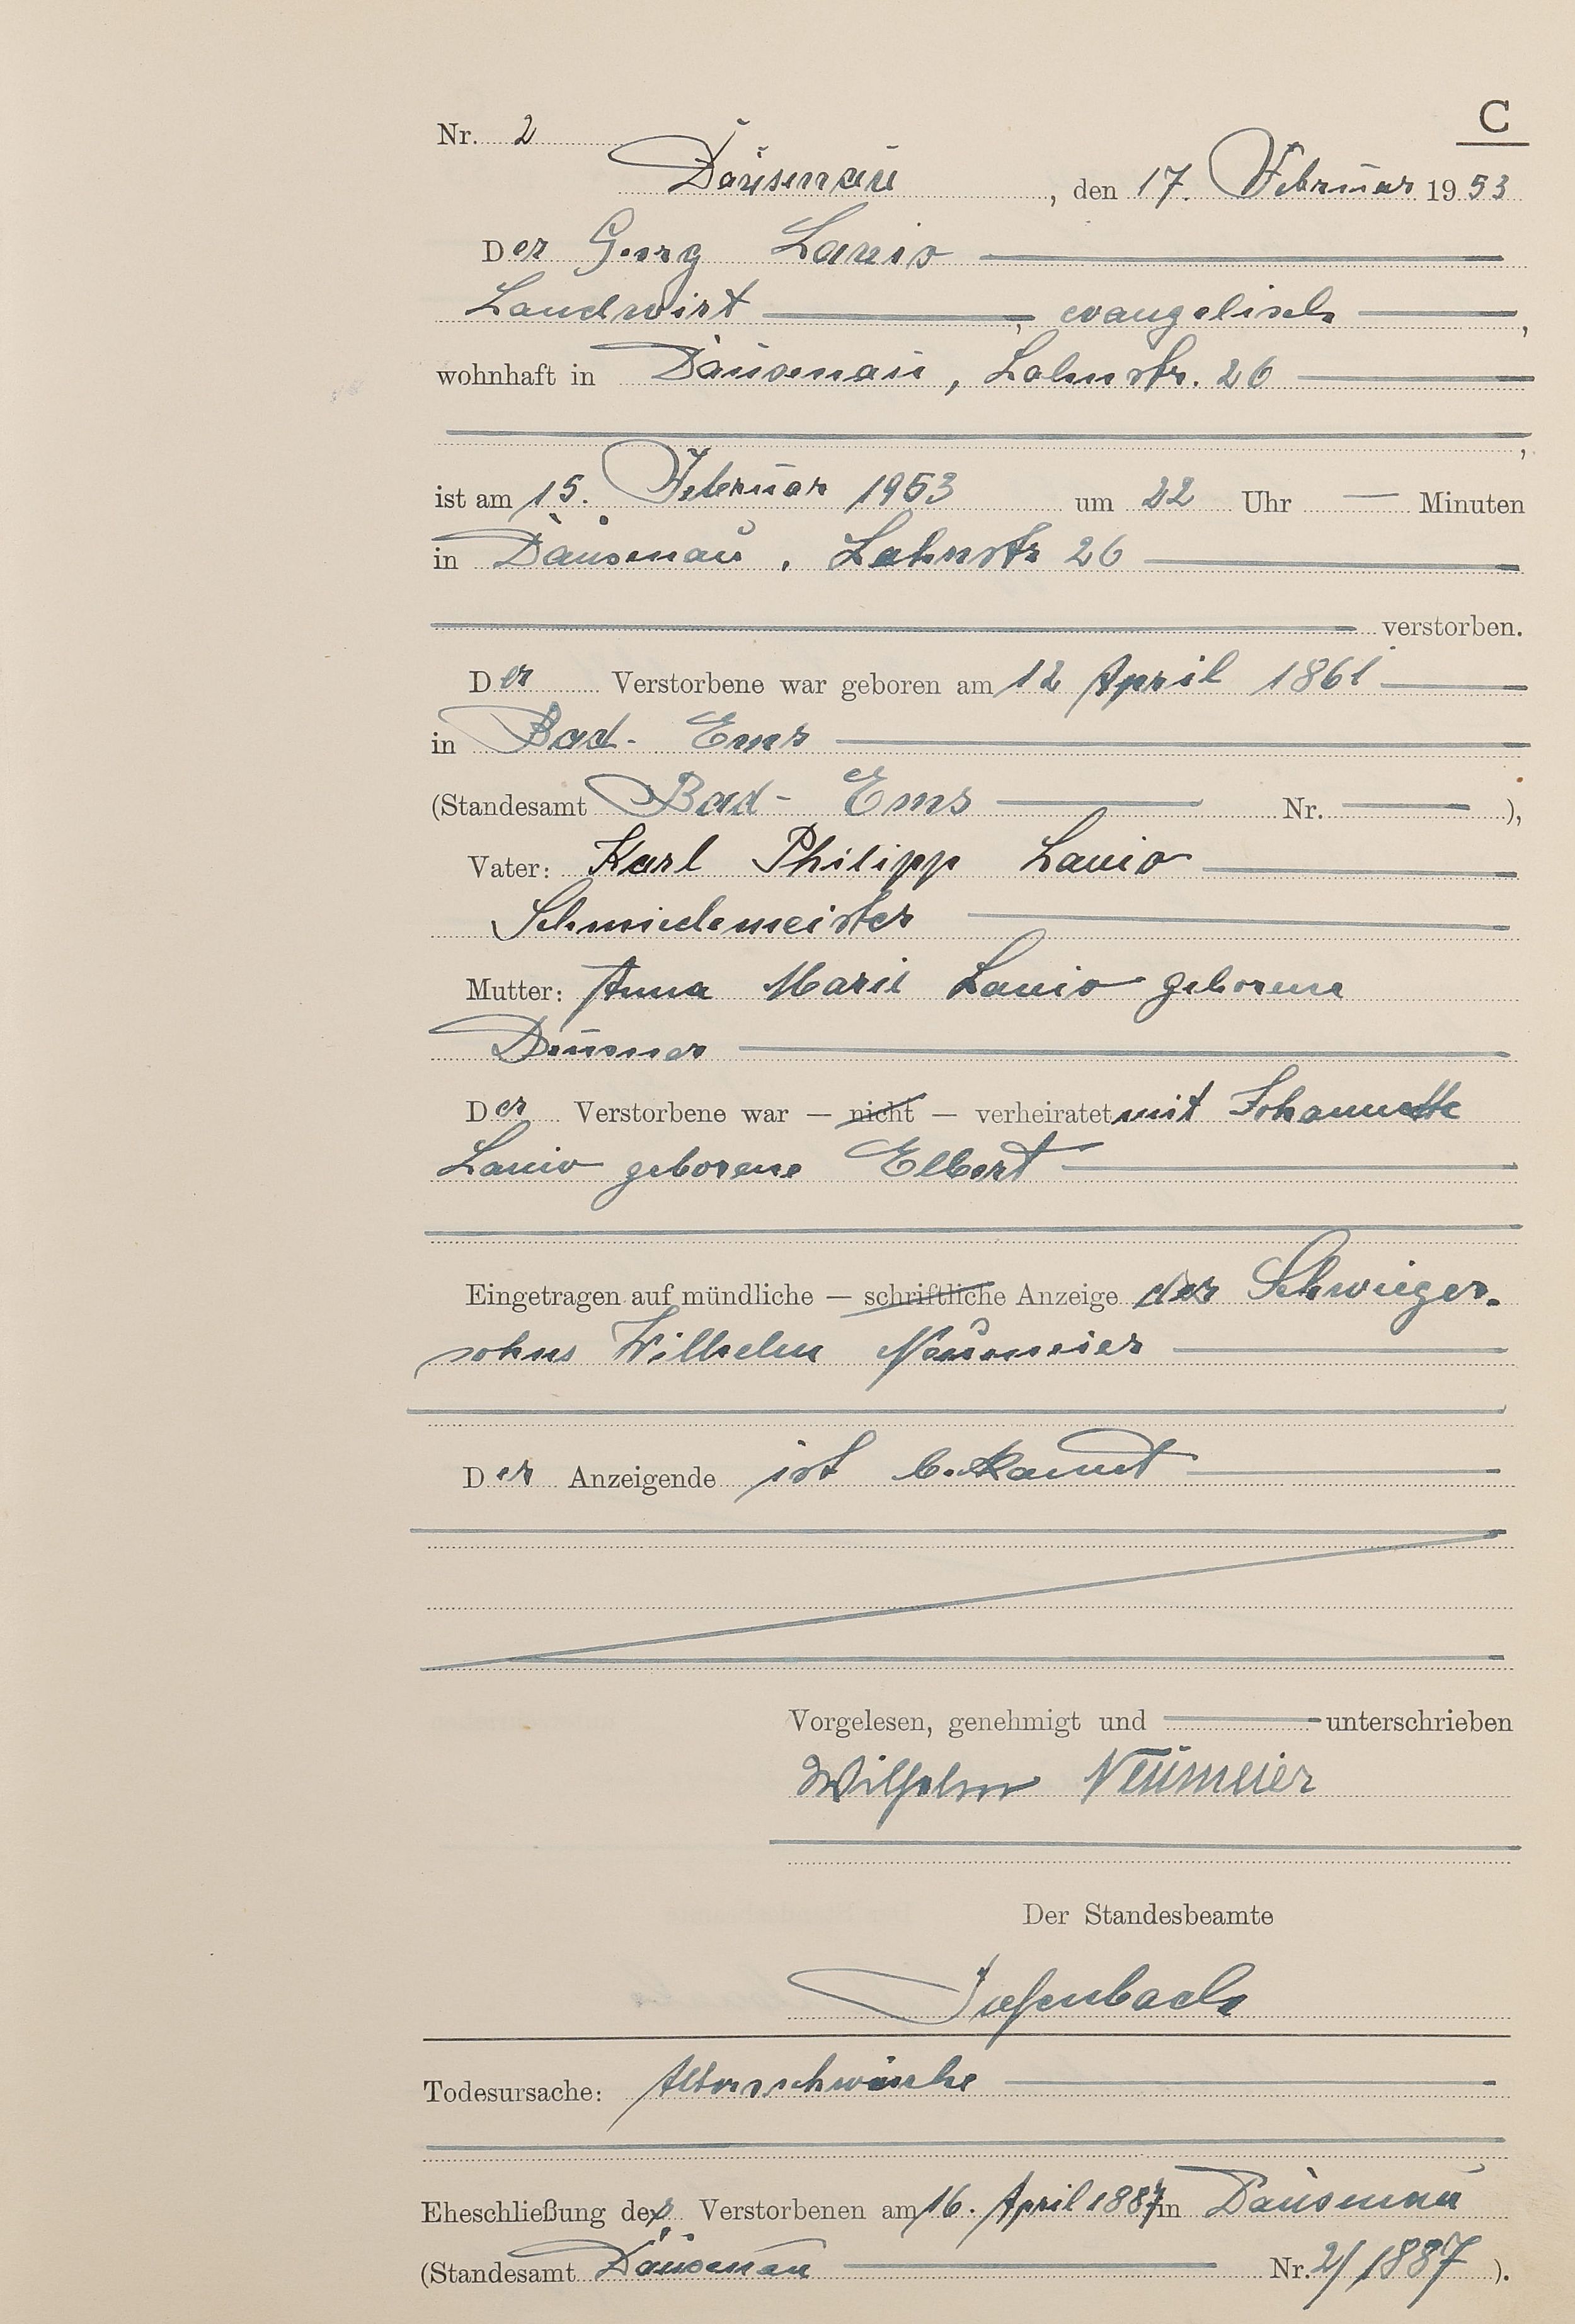 C
Nr. 2
Dausenau, den 17. Februar 1953
Der Georg Lanio
Landwirt, evangelisch,
wohnhaft in Dausenau, Lahnstr. 26
,
ist am 15. Februar 1953 um 22 Uhr — Minuten
in Dausenau, Lahnstr 26
verstorben.
Der Verstorbene war geboren am 12 April 1861
in Bad-Ems
(Standesamt Bad-Ems — Nr. — ),
Vater: Karl Philipp Lanio
Schmiedemeister
Mutter: Anna Marie Lanio geborene
Der Verstorbene war — nicht — verheiratet mit Johannette
Lanio geborene Elbert
Eingetragen auf mündliche — schriftliche Anzeige des Schwieger-
sohns Wilhelm Neumeier
Der Anzeigende ist bekannt
Vorgelesen, genehmigt und — unterschrieben
Wilhelm Neumeier
Der Standesbeamte
Tiefenbach
Todesursache: Altersschwäche
Eheschließung des Verstorbenen am 16. April 1887 in Dausenau
(Standesamt Dausenau — Nr. 2/1887 ).